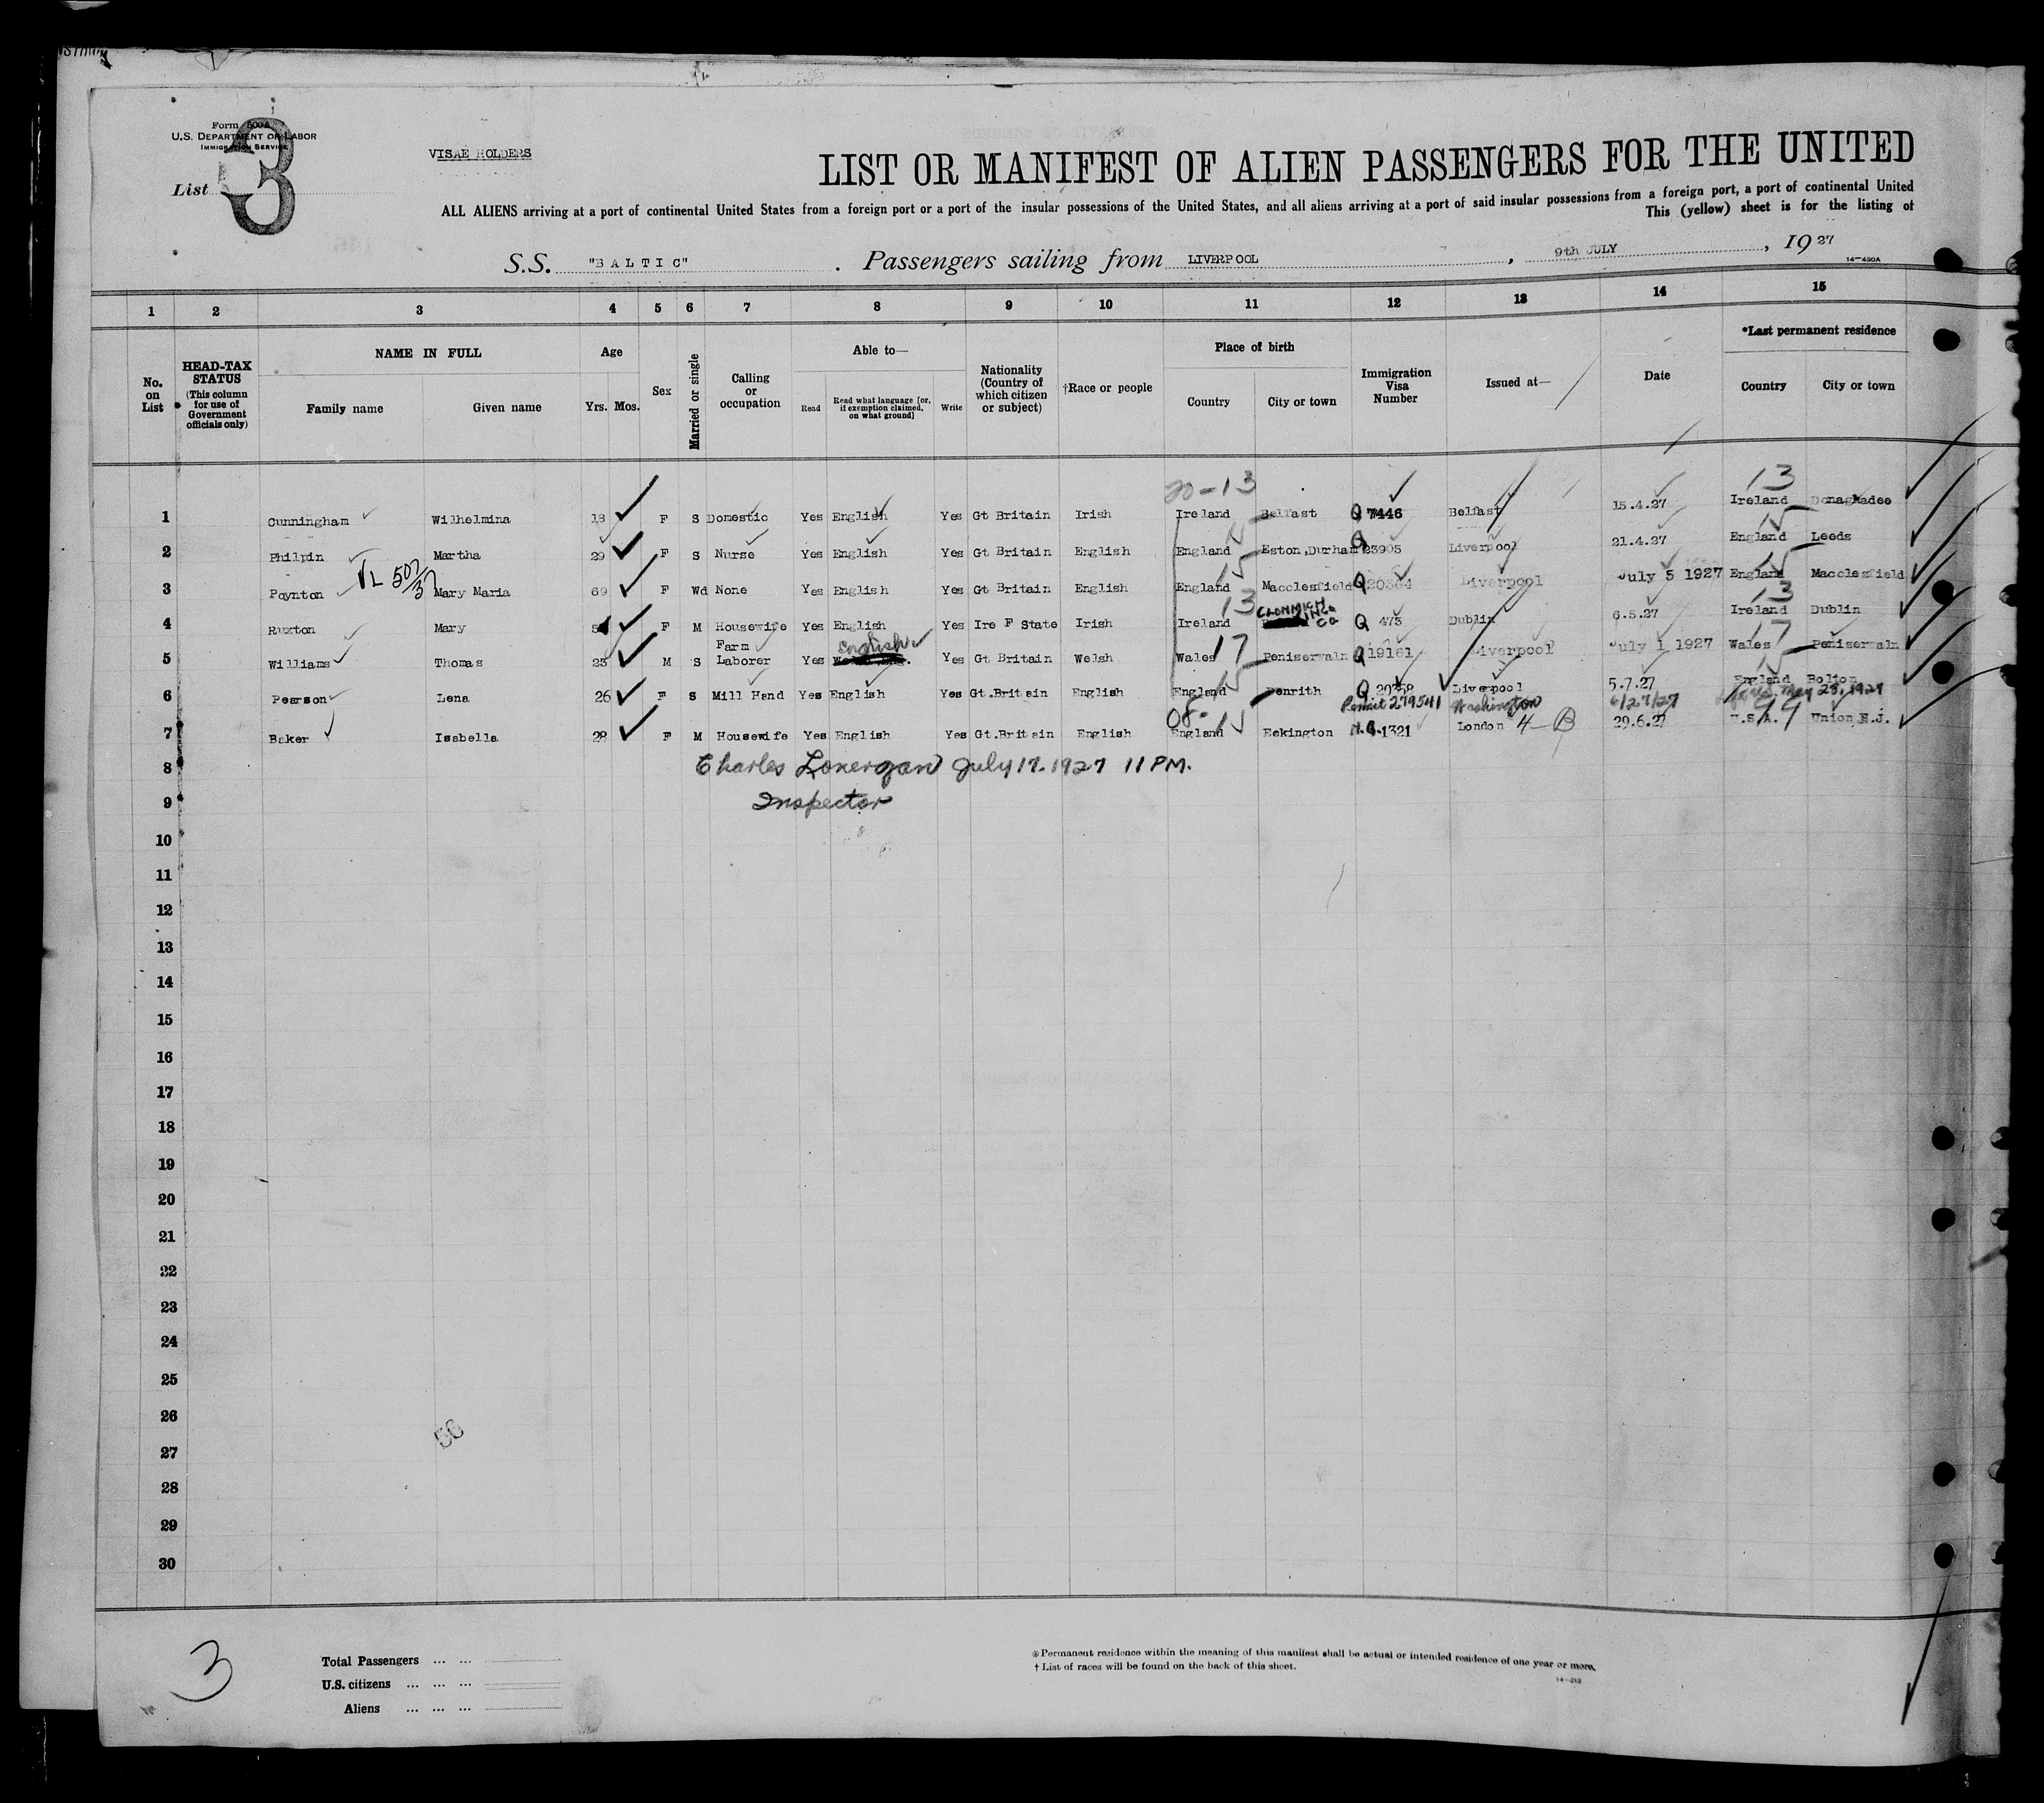 Form 500A
U.S. DEPARTMENT OF LABOR
IMMIGRATION SERVICE
List 3
VISAE HOLDERS
LIST OR MANIFEST OF ALIEN PASSENGERS FOR THE UNITED
ALL ALIENS arriving at a port of continental United States from a foreign port or a port of the insular possessions of the United States, and all aliens arriving at a port of said insular possessions from a foreign port, a port of continental United
This (yellow) sheet is for the listing of
S.S. "BALTIC" . Passengers sailing from LIVERPOOL , 9th JULY , 1927
14—430A
1 2 3 4 5 6 7 8 9 10 11 12 13 14 15
No. on List
HEAD-TAX STATUS (This column for use of Government officials only)
NAME IN FULL
Family name Given name
Age
Yrs. Mos.
Sex
Married or single
Calling or occupation
Able to—
Read
Read what language [or, if exemption claimed, on what ground]
Write
Nationality (Country of which citizen or subject)
†Race or people
Place of birth
Country City or town
Immigration Visa Number
Issued at—
Date
*Last permanent residence
Country City or town
20-13 13
1 Cunningham Wilhelmina 18 F S Domestic Yes English Yes Gt Britain Irish Ireland Belfast Q 7446 Belfast 15.4.27 Ireland Donaghadee
15 15
2 Philpin Martha 29 F S Nurse Yes English Yes Gt Britain English England Eston,Durham Q 23905 Liverpool 21.4.27 England Leeds
VL 507/37 15 15
3 Poynton Mary Maria 69 F Wd None Yes English Yes Gt Britain English England Macclesfield Q 20364 Liverpool July 5 1927 England Macclesfield
13 13
4 Ruxton Mary F M Housewife Yes English Yes Ire F State Irish Ireland Q 475 Dublin 6.5.27 Ireland Dublin
English 17 17
5 Williams Thomas 23 M S Farm Laborer Yes Yes Gt Britain Welsh Wales Penisarwaln Q 19161 Liverpool July 1 1927 Wales Penisarwaln
15 15
6 Pearson Lena 26 F S Mill Hand Yes English Yes Gt.Britain English England Penrith Q 20358 Liverpool 5.7.27 England Bolton
Permit 279541 Washington 6/27/27 May 28, 1927
08-15 99
7 Baker Isabella 28 F M Housewife Yes English Yes Gt.Britain English England Eckington N.Q. 1321 London 4-B 29.6.27 U.S.A. Union N.J.
8 Charles Lonergan July 17. 1927 11 PM.
9 Inspector
10
11
12
13
14
15
16
17
18
19
20
21
22
23
24
25
26
56
27
28
29
30
3
Total Passengers ... ...
U.S. citizens ... ... ...
Aliens ... ... ...
*Permanent residence within the meaning of this manifest shall be actual or intended residence of one year or more.
†List of races will be found on the back of this sheet.
14—213